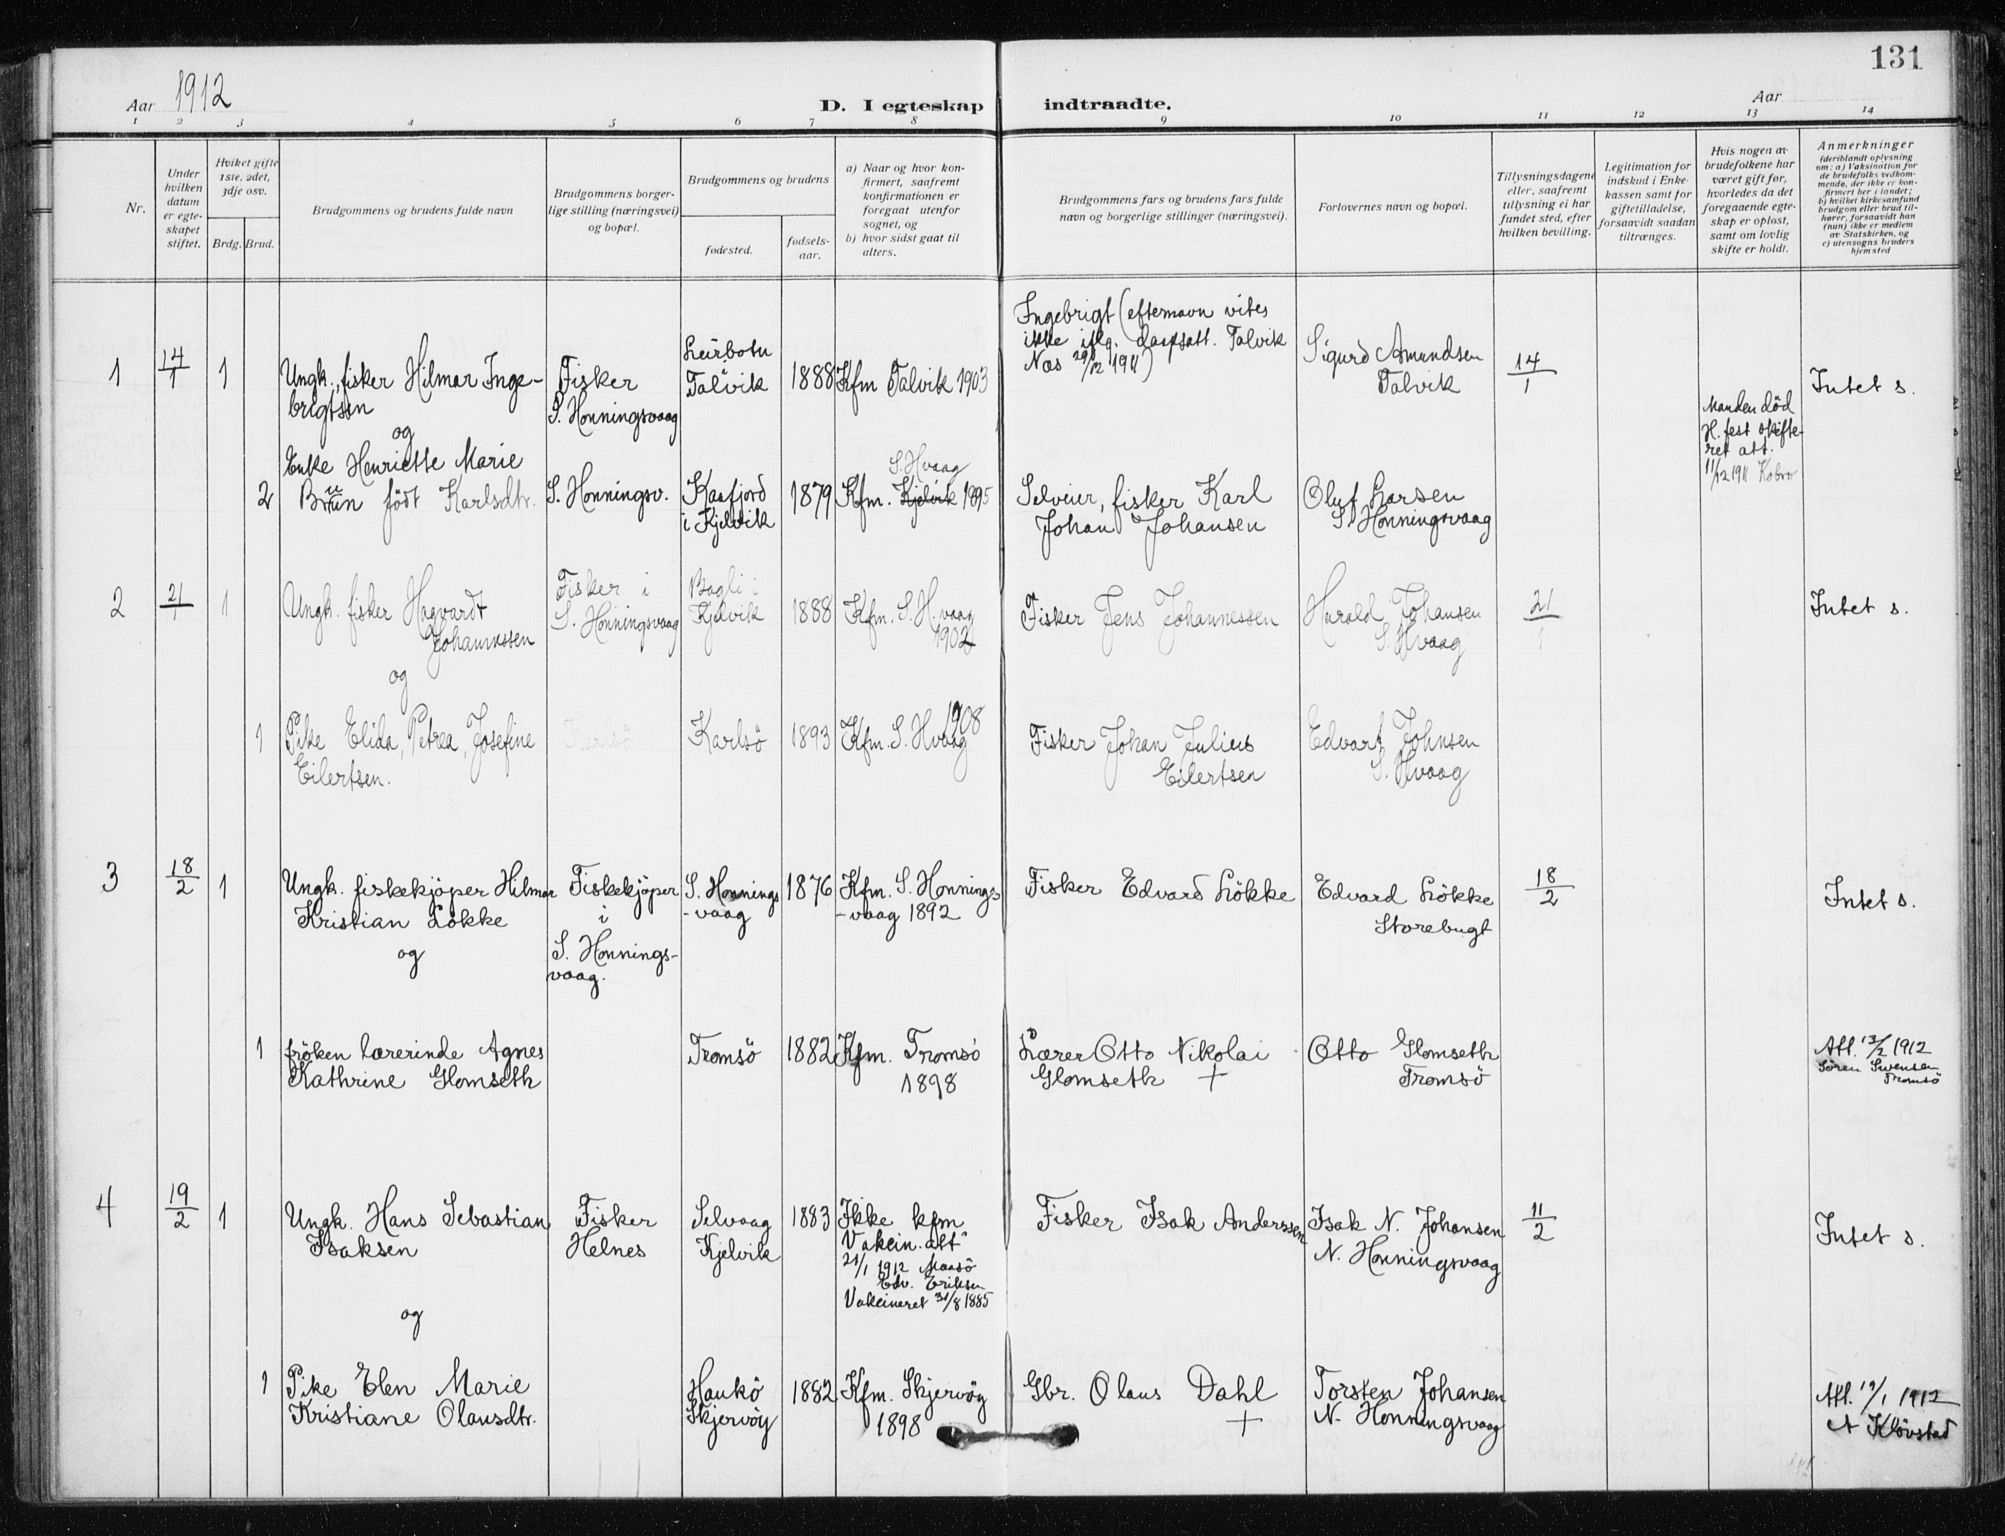 131
Aar 1912
D. I egteskap indtraadte.
Aar
1 2 3 4 5 6 7 8 9 10 11 12 13 14
Nr.
Under
hvilken
datum
er egte-
skapet
stiftet.
Hvilket gifte
1ste, 2det,
3dje osv.
Brdg. Brud.
Brudgommens og brudens fulde navn
Brudgommens borger-
lige stilling (næringsvei)
og bopæl.
Brudgommens og brudens
fødested.
fødsels-
aar.
a) Naar og hvor kon-
firmert, saafremt
konfirmationen er
foregaat utenfor
sognet, og
b) hvor sidst gaat til
alters.
Brudgommens fars og brudens fars fulde
navn og borgerlige stillinger (næringsvei).
Forlovernes navn og bopæl.
Tillysningsdagene
eller, saafremt
tillysning ei har
fundet sted, efter
hvilken bevilling.
Legitimation for
indskud i Enke-
kassen samt for
giftetilladelse,
forsaavidt saadan
tiltrænges.
Hvis nogen av
brudefolkene har
været gift før,
hvorledes da det
foregaaende egte-
skap er opløst,
samt om lovlig
skifte er holdt.
Anmerkninger
(deriblandt oplysning
om: a) Vaksination for
de brudefolks vedkom-
mende, der ikke er kon-
firmert her i landet;
b) hvilket kirkesamfund
brudgom eller brud til-
hører, forsaavidt han
(hun) ikke er medlem
av Statskirken, og
c) utensogns bruders
hjemsted
1
14/1
1
Ungk., fisker Hilmar Inge-
brigtsen
og
Fisker
S. Honningsvaag
Leirbotn
Talvik
1888
Kfm Talvik 1903
Ingebrigt (efternavn vites
ikke iflg. daapsatt. Talvik
Næs 29/12 1911)
Sigurd Amundsen
Talvik
14/1
Intet s.
2
Enke Henriette Marie
Bruun født Karlsdtr.
S. Honningsv.
Kaafjord
i Kjelvik
1879
S. Hvaag
Kfm. Kjelvik 1895
Selveier, fisker Karl
Johan Johansen
Oluf Larsen
S. Honningsvaag
Manden död
H. fest skifte-
ret att.
11/12 1911 Kobro
2
21/1
1
Ungk. fisker Hagvardt
Johannessen
og
Fisker i
S. Honningsvaag
Bogli i
Kjelvik
1888
Kfm. S. H.vaag
1902
Fisker Jens Johannessen
Harald Johansen
S. Hvaag
21/1
Intet s.
1
Pike Elida, Petrea, Josefine
Eilertsen.
Karlsö
Karlsö
1893
1908
Kfm. S. Hvaag
Fisker Johan Julius
Eilertsen
Edvart Johnsen
S. Hvaag
3
18/2
1
Ungk. fiskekjöper Hilmar
Kristian Lökke
og
Fiskekjöper
i
S. Honnings-
vaag.
S. Honnings
-vaag
1876
Kfm. S. Honnings-
-vaag 1892
Fisker Edvard Lökke
Edvard Lökke
Storebugt
18/2
Intet s.
1
fröken lærerinde Agnes
Kathrine Glomseth
Tromsö
1882
Kfm. Tromsö
1898
Lærer Otto Nikolai
Glomseth +
Otto Glomseth
Tromsö
Att. 13/2 1912
Sören Svensen
Tromsö
4
19/2
1
Ungk. Hans Sebastian
Isaksen
og
Fisker
Helnes
Selvaag
Kjelvik
1883
Ikke kfm
Vakcin. att
21/1 1912 Maasö
Edv. Eriksen
Vakcineret 31/8 1885
Fisker Isak Anderssen
Isak N. Johansen
N. Honningsvaag
11/2
Intet s.
1
Pike Elen Marie
Kristiane Olausdtr.
Haukö
Skjervöy
1882
Kfm. Skjervöy
1898
Gbr. Olaus Dahl
+
Torsten Johansen
N. Honningsvaag
Att. 19/1 1912
A Klövstad